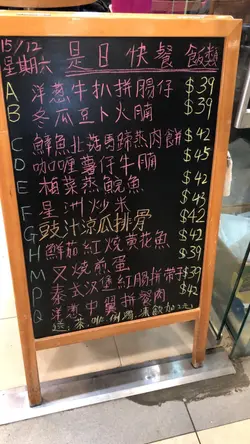 15/12
星期六
是日快餐 飯類
A 洋蔥牛扒拼腸仔 $39
B 冬瓜豆卜火腩 $39
C 鯪魚北菇馬蹄蒸肉餅 $42
D 咖喱薯仔牛腩 $45
E 梅菜蒸鯇魚 $42
F 星洲炒米
G 豉汁涼瓜排骨 $42
H 鮮茄紅燒黃花魚
M 叉燒煎蛋
P 泰式汉堡紅腸拼帶子
Q 洋蔥中翼拼餐肉 $42